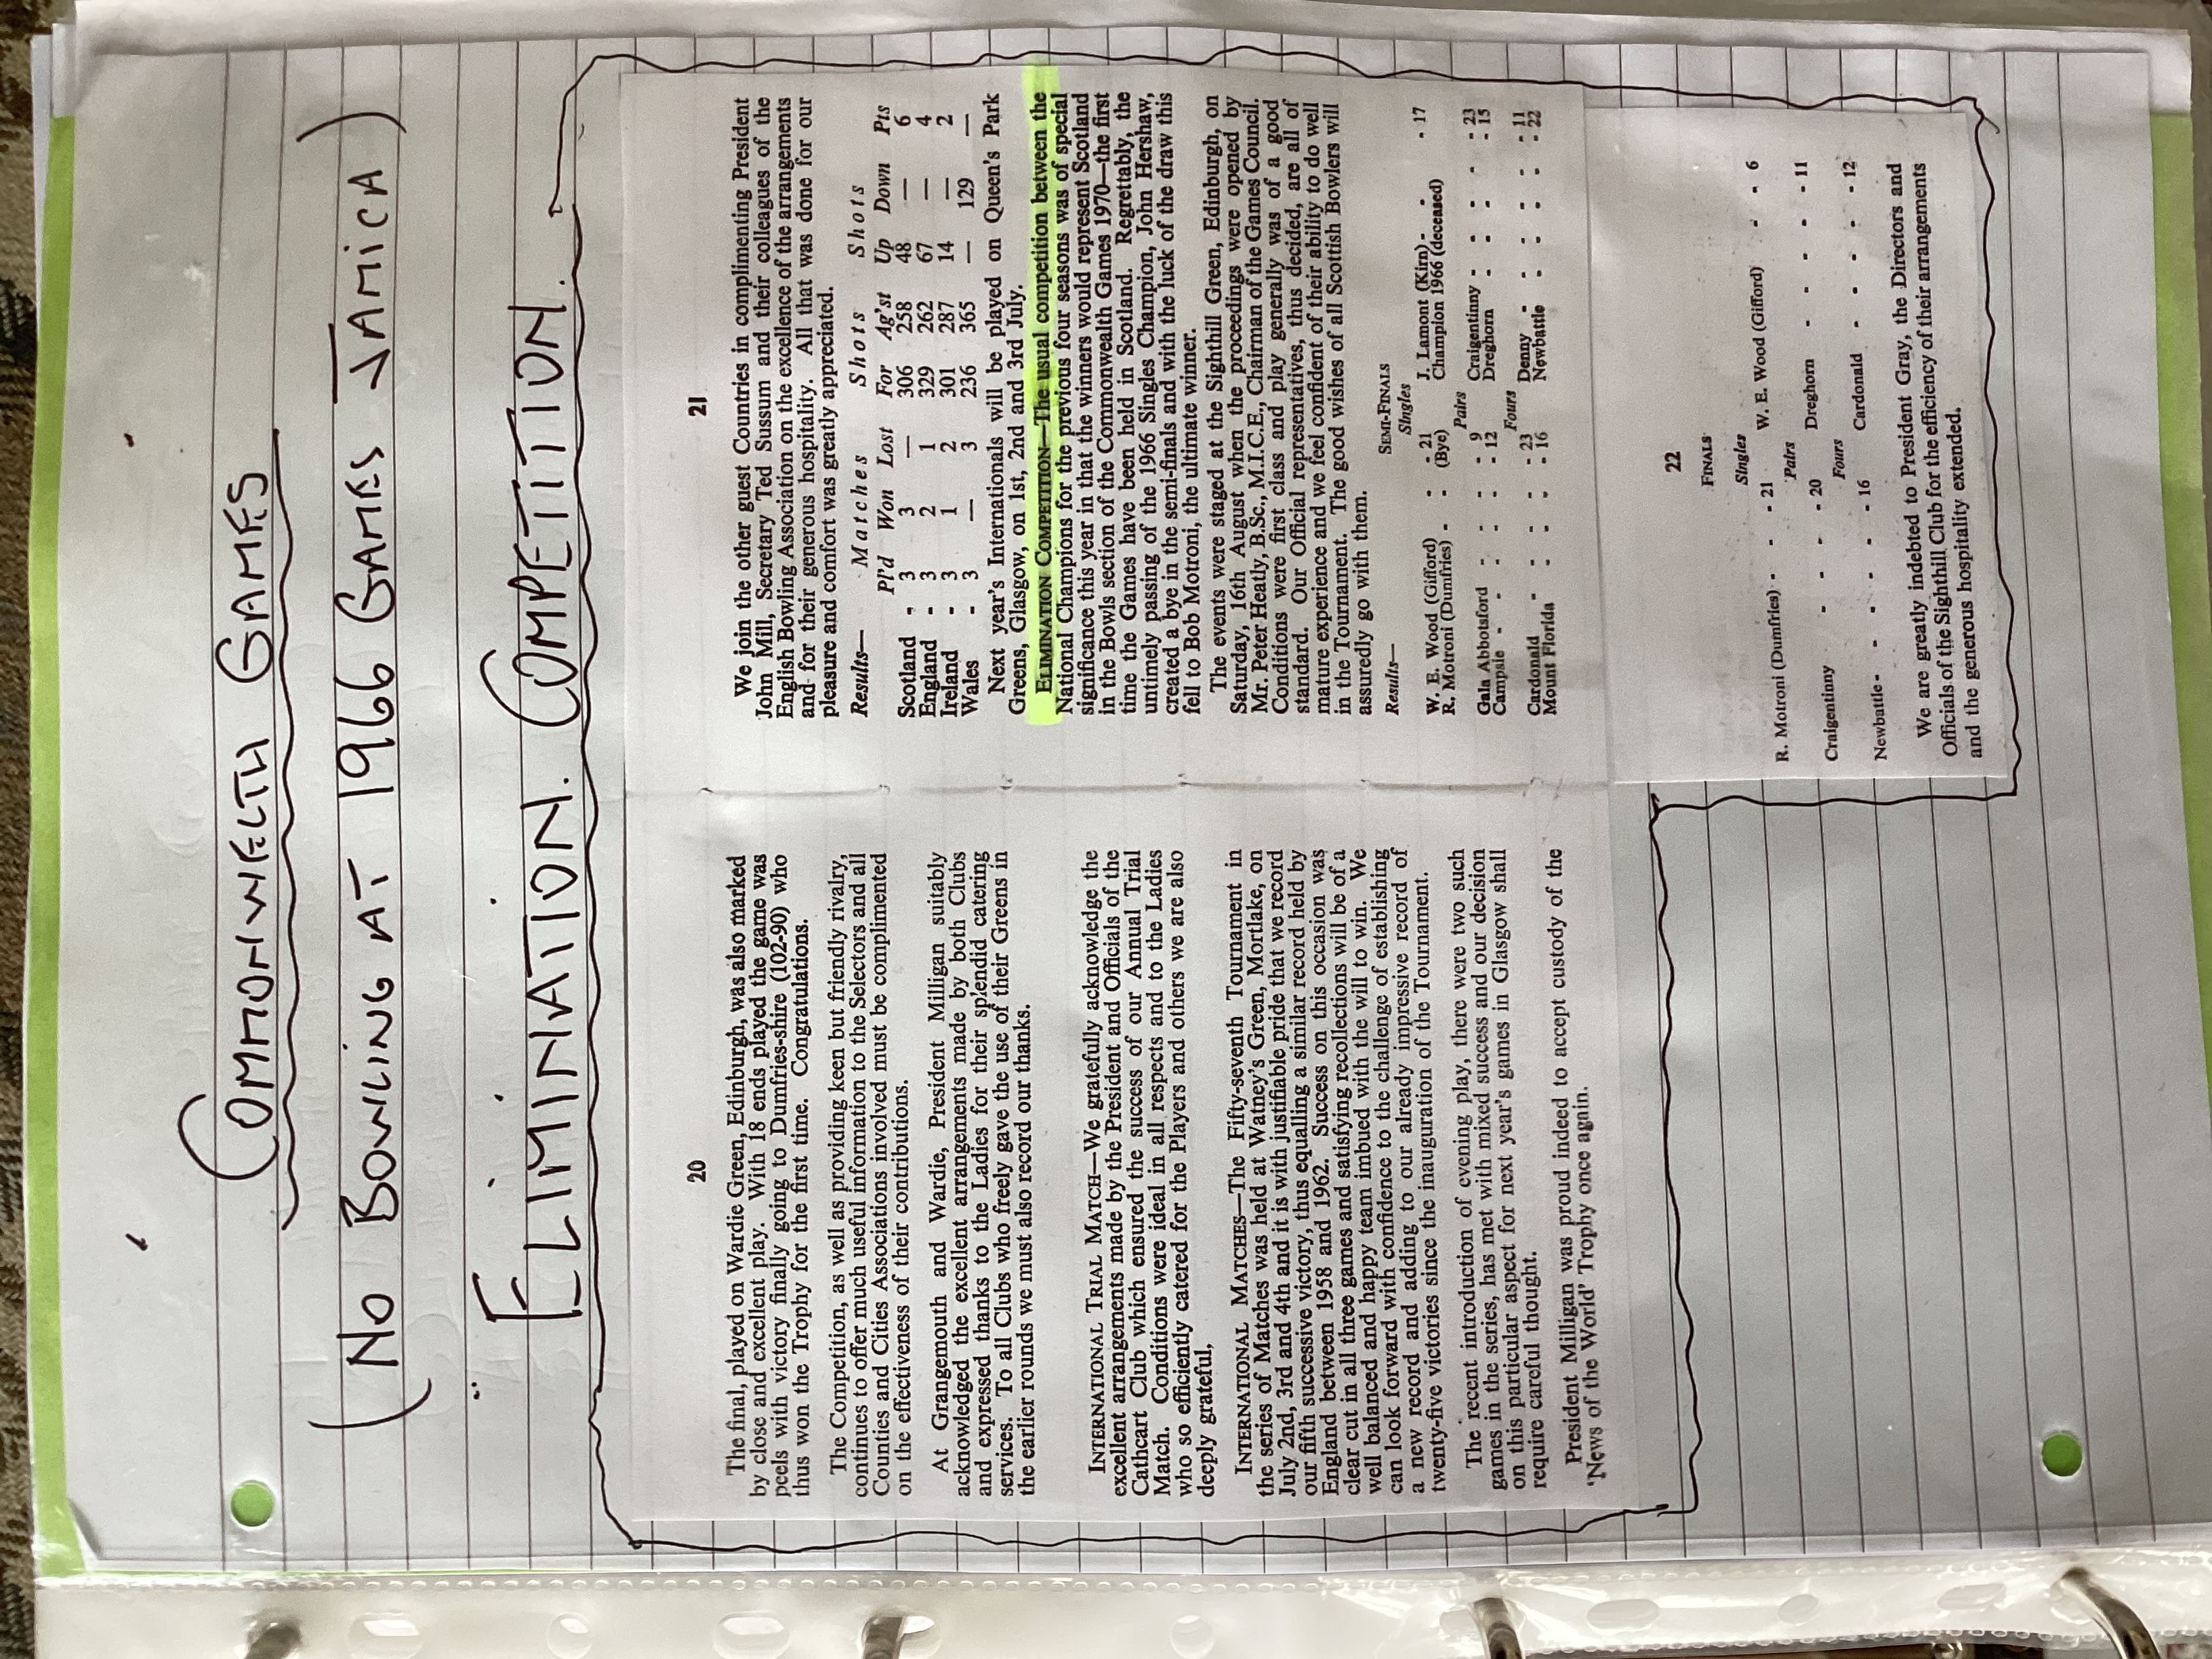 COMMONWELTH GAMES
(NO BOWLING AT 1966 GAMES JAMICA)
ELIMINATION. COMPETITION.
20
The final, played on Wardie Green, Edinburgh, was also marked
by close and excellent play. With 18 ends played the game was
peels with victory finally going to Dumfries-shire (102-90) who
thus won the Trophy for the first time. Congratulations.
The Competition, as well as providing keen but friendly rivalry,
continues to offer much useful information to the Selectors and all
Counties and Cities Associations involved must be complimented
on the effectiveness of their contributions.
At Grangemouth and Wardie, President Milligan suitably
acknowledged the excellent arrangements made by both Clubs
and expressed thanks to the Ladies for their splendid catering
services. To all Clubs who freely gave the use of their Greens in
the earlier rounds we must also record our thanks.
INTERNATIONAL TRIAL MATCH—We gratefully acknowledge the
excellent arrangements made by the President and Officials of the
Cathcart Club which ensured the success of our Annual Trial
Match. Conditions were ideal in all respects and to the Ladies
who so efficiently catered for the Players and others we are also
deeply grateful,
INTERNATIONAL MATCHES—The Fifty-seventh Tournament in
the series of Matches was held at Watney's Green, Mortlake, on
July 2nd, 3rd and 4th and it is with justifiable pride that we record
our fifth successive victory, thus equalling a similar record held by
England between 1958 and 1962. Success on this occasion was
clear cut in all three games and satisfying recollections will be of a
well balanced and happy team imbued with the will to win. We
can look forward with confidence to the challenge of establishing
a new record and adding to our already impressive record of
twenty-five victories since the inauguration of the Tournament.
The recent introduction of evening play, there were two such
games in the series, has met with mixed success and our decision
on this particular aspect for next year's games in Glasgow shall
require careful thought.
President Milligan was proud indeed to accept custody of the
'News of the World' Trophy once again.
21
We join the other guest Countries in complimenting President
John Mill, Secretary Ted Sussum and their colleagues of the
English Bowling Association on the excellence of the arrangements
and for their generous hospitality. All that was done for our
pleasure and comfort was greatly appreciated.
Results— Matches Shots Shots
Pl'd Won Lost For Ag'st Up Down Pts
Scotland - 3 3 — 306 258 48 — 6
England - 3 2 1 329 262 67 — 4
Ireland - 3 1 2 301 287 14 — 2
Wales - 3 — 3 236 365 — 129 —
Next year's Internationals will be played on Queen's Park
Greens, Glasgow, on 1st, 2nd and 3rd July.
ELIMINATION COMPETITION—The usual competition between the
National Champions for the previous four seasons was of special
significance this year in that the winners would represent Scotland
in the Bowls section of the Commonwealth Games 1970—the first
time the Games have been held in Scotland. Regrettably, the
untimely passing of the 1966 Singles Champion, John Hershaw,
created a bye in the semi-finals and with the luck of the draw this
fell to Bob Motroni, the ultimate winner.
The events were staged at the Sighthill Green, Edinburgh, on
Saturday, 16th August when the proceedings were opened by
Mr. Peter Heatly, B.Sc., M.I.C.E., Chairman of the Games Council.
Conditions were first class and play generally was of a good
standard. Our Official representatives, thus decided, are all of
mature experience and we feel confident of their ability to do well
in the Tournament. The good wishes of all Scottish Bowlers will
assuredly go with them.
Results—
SEMI-FINALS
Singles
W. E. Wood (Gifford) - - 21 J. Lamont (Kirn) - - - 17
R. Motroni (Dumfries) - - (Bye) Champion 1966 (deceased)
Pairs
Gala Abbotsford - - - - 9 Craigentinny - - - - - 23
Campsie - - - - - 12 Dreghorn - - - - - 15
Fours
Cardonald - - - - - 23 Denny - - - - - 11
Mount Florida - - - - 16 Newbattle - - - - - 22
22
FINALS
Singles
R. Motroni (Dumfries) - - - 21 W. E. Wood (Gifford) - - 6
Pairs
Craigentinny - - - - 20 Dreghorn - - - - - 11
Fours
Newbattle - - - - - 16 Cardonald - - - - 12
We are greatly indebted to President Gray, the Directors and
Officials of the Sighthill Club for the efficiency of their arrangements
and the generous hospitality extended.